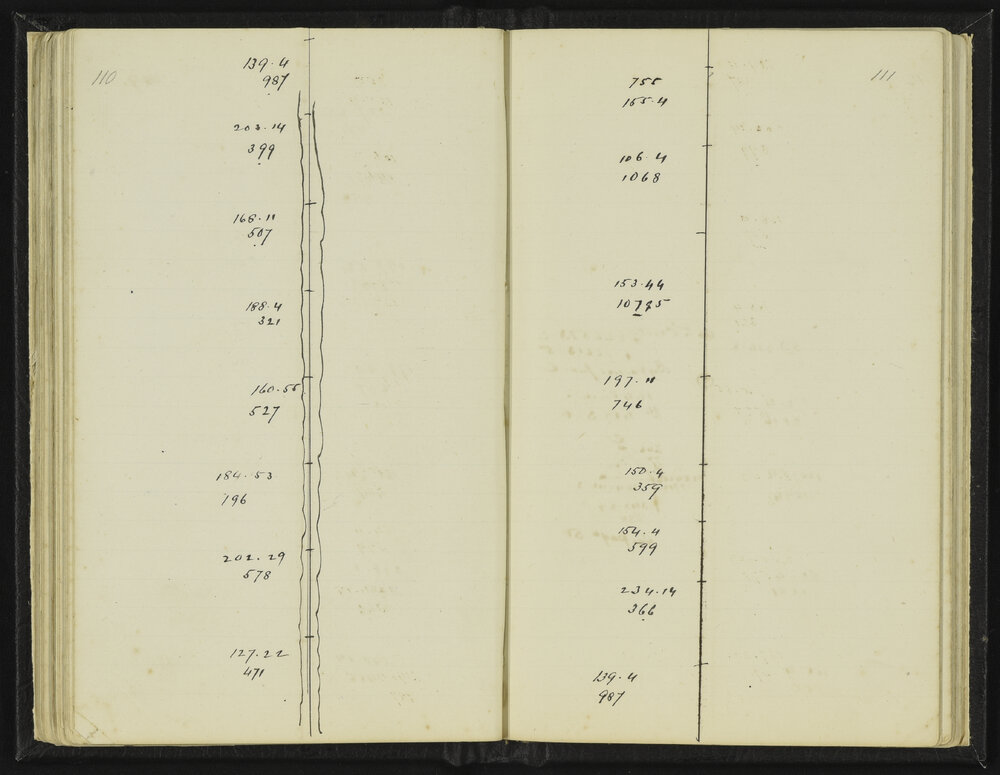 110
139.4
987
203.14
399
168.11
507
188.4
321
160.55
527
184.53
196
202.29
578
127.22
471
111
755
165.4
106.4
1068
153.44
197.11
746
150.4
359
154.4
599
234.14
366
139.4
987